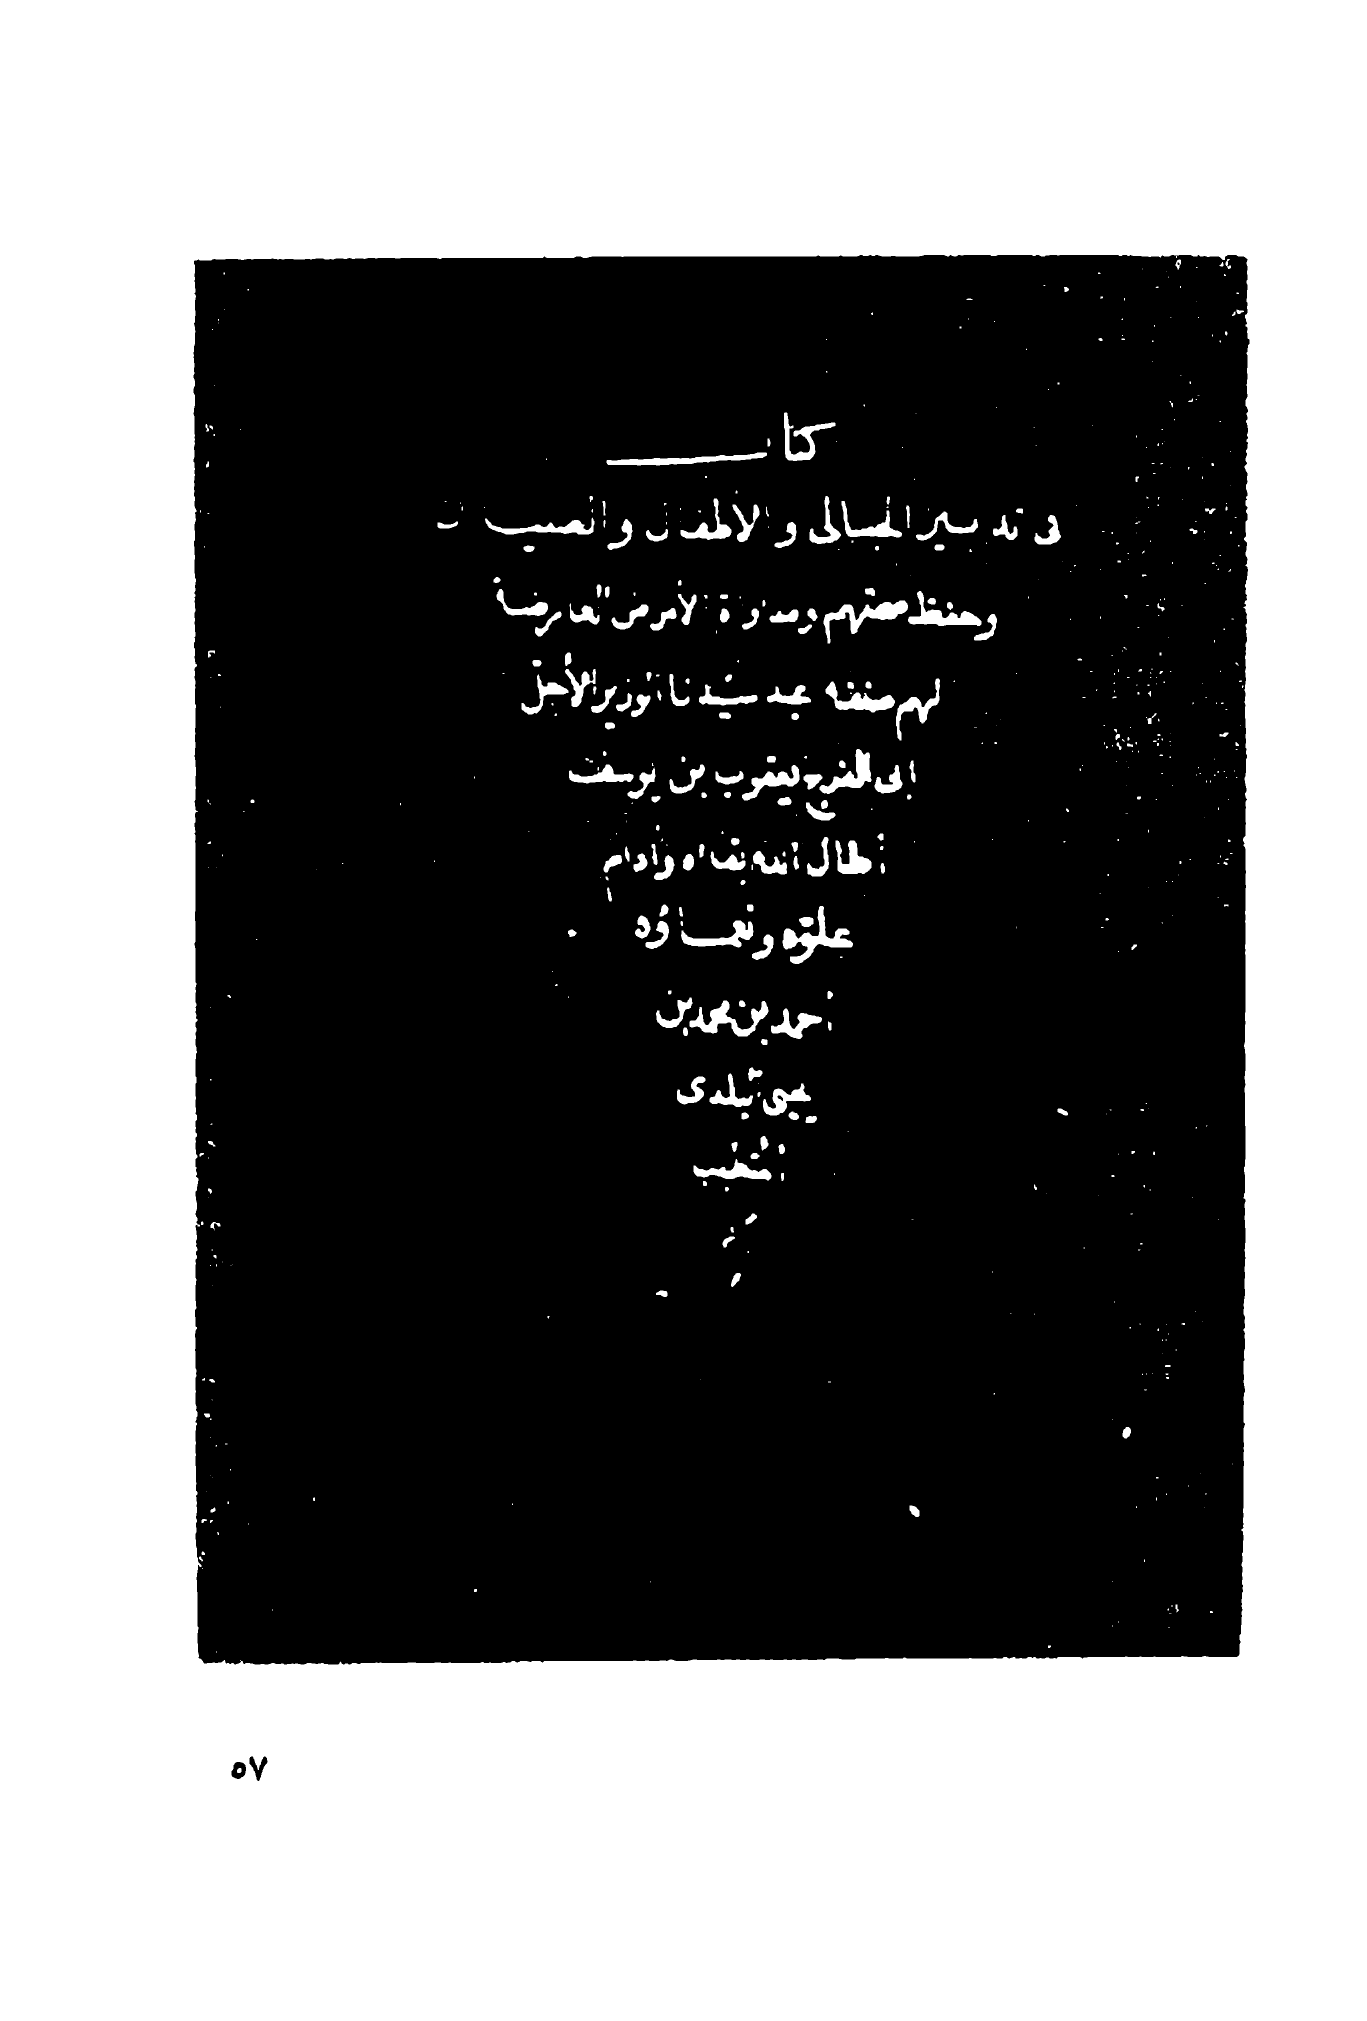 كتاب
فى تدبير الحبالى والأطفال والصبيان
وحفظ صحتهم ومداواة الأمراض العارضة
لهم صنفه عبد سيدنا الوزير الأجل
ابى الفرج يعقوب بن يوسف
أطال الله بقاه وأدام
علوه ونعماؤه
أحمد بن محمد بن
يحيى البلدى
المتطبب
٥٧